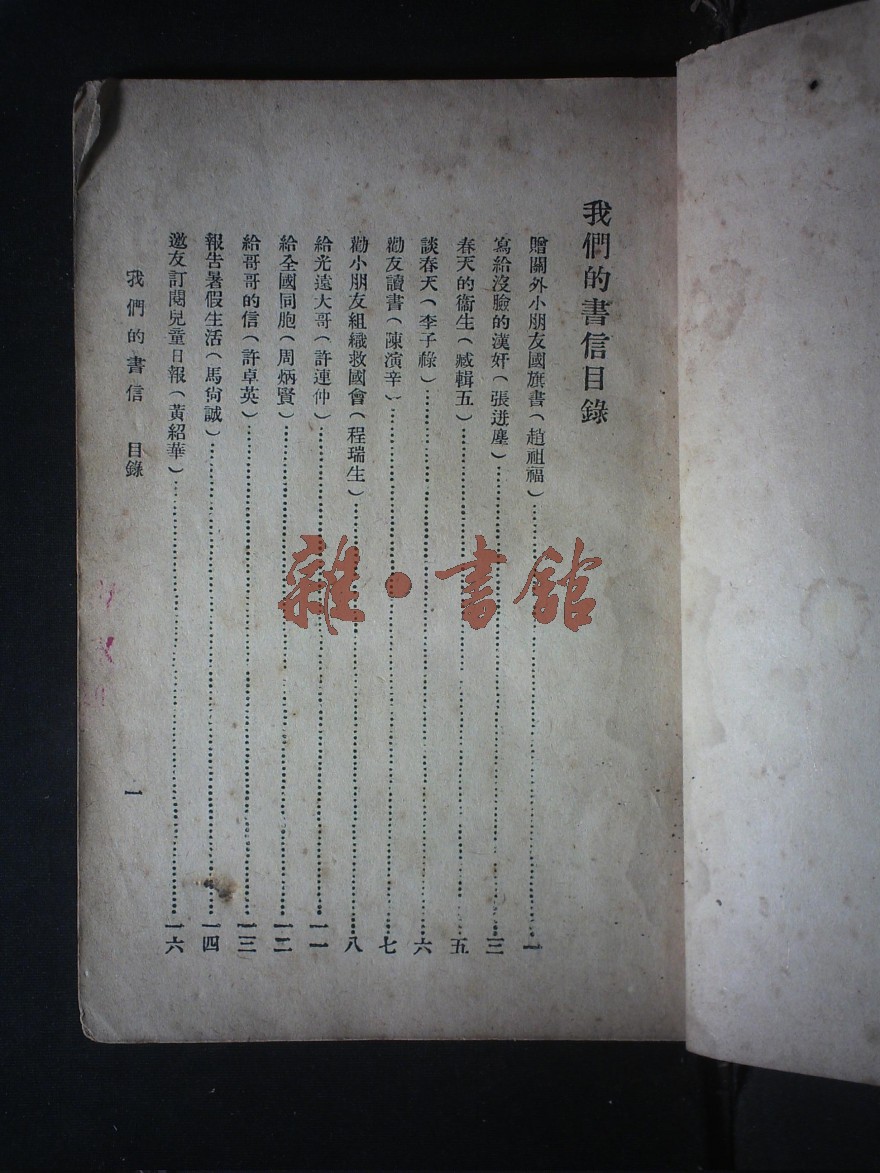 我們的書信目錄
贈關外小朋友國旗書(趙祖福)……一
寫給沒臉的漢奸(張迸塵)……三
春天的衞生(臧輯五)……五
談春天(李子祿)……六
勸友讀書(陳演辛)……七
勸小朋友組織救國會(程瑞生)……八
給光遠大哥(許連仲)……一一
給全國同胞(周炳賢)……一二
給哥哥的信(許卓英)……一三
報告暑假生活(馬尙誠)……一四
邀友訂閱兒童日報(黃紹華)……一六
我們的書信 目錄 一
雜·書館